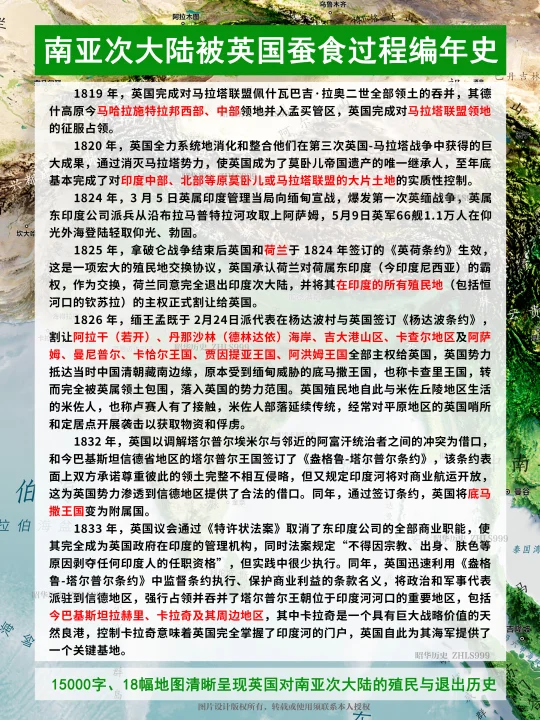 乌鲁木齐
阿拉木图
南亚次大陆被英国蚕食过程编年史
1819 年，英国完成对马拉塔联盟佩什瓦巴吉·拉奥二世全部领土的吞并，其德
什高原今马哈拉施特拉邦西部、中部领地并入孟买管区，英国完成对马拉塔联盟领地
的征服占领。
1820 年，英国全力系统地消化和整合他们在第三次英国-马拉塔战争中获得的巨
大成果，通过消灭马拉塔势力，使英国成为了莫卧儿帝国遗产的唯一继承人，至年底
基本完成了对印度中部、北部等原莫卧儿或马拉塔联盟的大片土地的实质性控制。
1824 年，3 月 5 日英属印度管理当局向缅甸宣战，爆发第一次英缅战争，英属
东印度公司派兵从沿布拉马普特拉河攻取上阿萨姆，5月9日英军66舰1.1万人在仰
光外海登陆轻取仰光、勃固。
1825 年，拿破仑战争结束后英国和荷兰于 1824 年签订的《英荷条约》生效，
这是一项宏大的殖民地交换协议，英国承认荷兰对荷属东印度（今印度尼西亚）的霸
权，作为交换，荷兰同意完全退出印度次大陆，并将其在印度的所有殖民地（包括恒
河口的钦苏拉）的主权正式割让给英国。
1826 年，缅王孟既于 2月24日派代表在杨达波村与英国签订《杨达波条约》，
割让阿拉干（若开）、丹那沙林（德林达依）海岸、吉大港山区、卡查尔地区及阿萨
姆、曼尼普尔、卡恰尔王国、贾因提亚王国、阿洪姆王国全部主权给英国，英国势力
抵达当时中国清朝藏南边缘，原本受到缅甸威胁的底马撒王国，也称卡查里王国，转
而完全被英属领土包围，落入英国的势力范围。英国殖民地自此与米佐丘陵地区生活
的米佐人，也称卢赛人有了接触，米佐人部落延续传统，经常对平原地区的英国哨所
和定居点开展袭击以获取物资和俘虏。
1832 年，英国以调解塔尔普尔埃米尔与邻近的阿富汗统治者之间的冲突为借口，
和今巴基斯坦信德省地区的塔尔普尔王国签订了《盎格鲁-塔尔普尔条约》，该条约表
面上双方承诺尊重彼此的领土完整不相互侵略，但又规定印度河将对商业航运开放，
这为英国势力渗透到信德地区提供了合法的借口。同年，通过签订条约，英国将底马
撒王国变为附属国。
1833 年，英国议会通过《特许状法案》取消了东印度公司的全部商业职能，使
其完全成为英国政府在印度的管理机构，同时法案规定“不得因宗教、出身、肤色等
原因剥夺任何印度人的任职资格”，但实践中很少执行。同年，英国迅速利用《盎格
鲁-塔尔普尔条约》中监督条约执行、保护商业利益的条款名义，将政治和军事代表
派驻到信德地区，强行占领并吞并了塔尔普尔王朝位于印度河河口的重要地区，包括
今巴基斯坦拉赫里、卡拉奇及其周边地区，其中卡拉奇是一个具有巨大战略价值的天
然良港，控制卡拉奇意味着英国完全掌握了印度河的门户，英国自此为其海军提供了
一个关键基地。
昭华历史 ZHLS999
15000字、18幅地图清晰呈现英国对南亚次大陆的殖民与退出历史
图片设计版权所有，转载或使用须联系本人授权